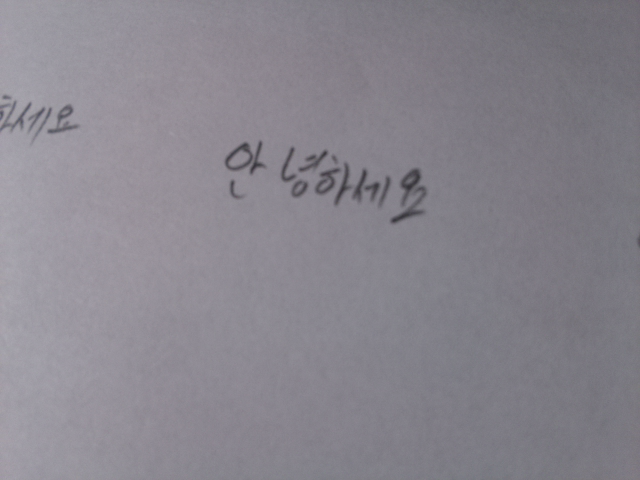 하세요
안녕하세요